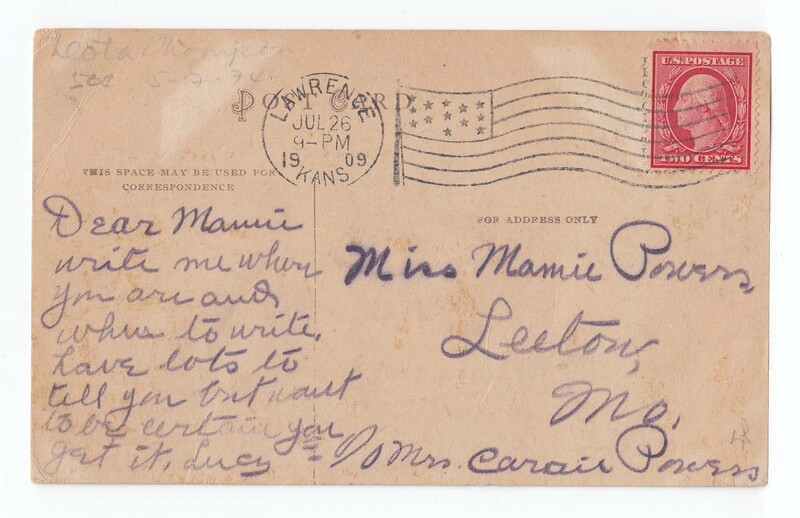 Leota Thompson
5-2-74
POST CARD
LAWRENCE
JUL 26
9-PM
1909
KANS
U.S. POSTAGE
TWO CENTS
THIS SPACE MAY BE USED FOR
CORRESPONDENCE
FOR ADDRESS ONLY
Dear Mamie
write me where
you are and
where to write.
have lots to
tell you but want
to be certain you
get it, Lucy
Miss Mamie Powers,
Leeton,
Mo.
Mrs. Powers